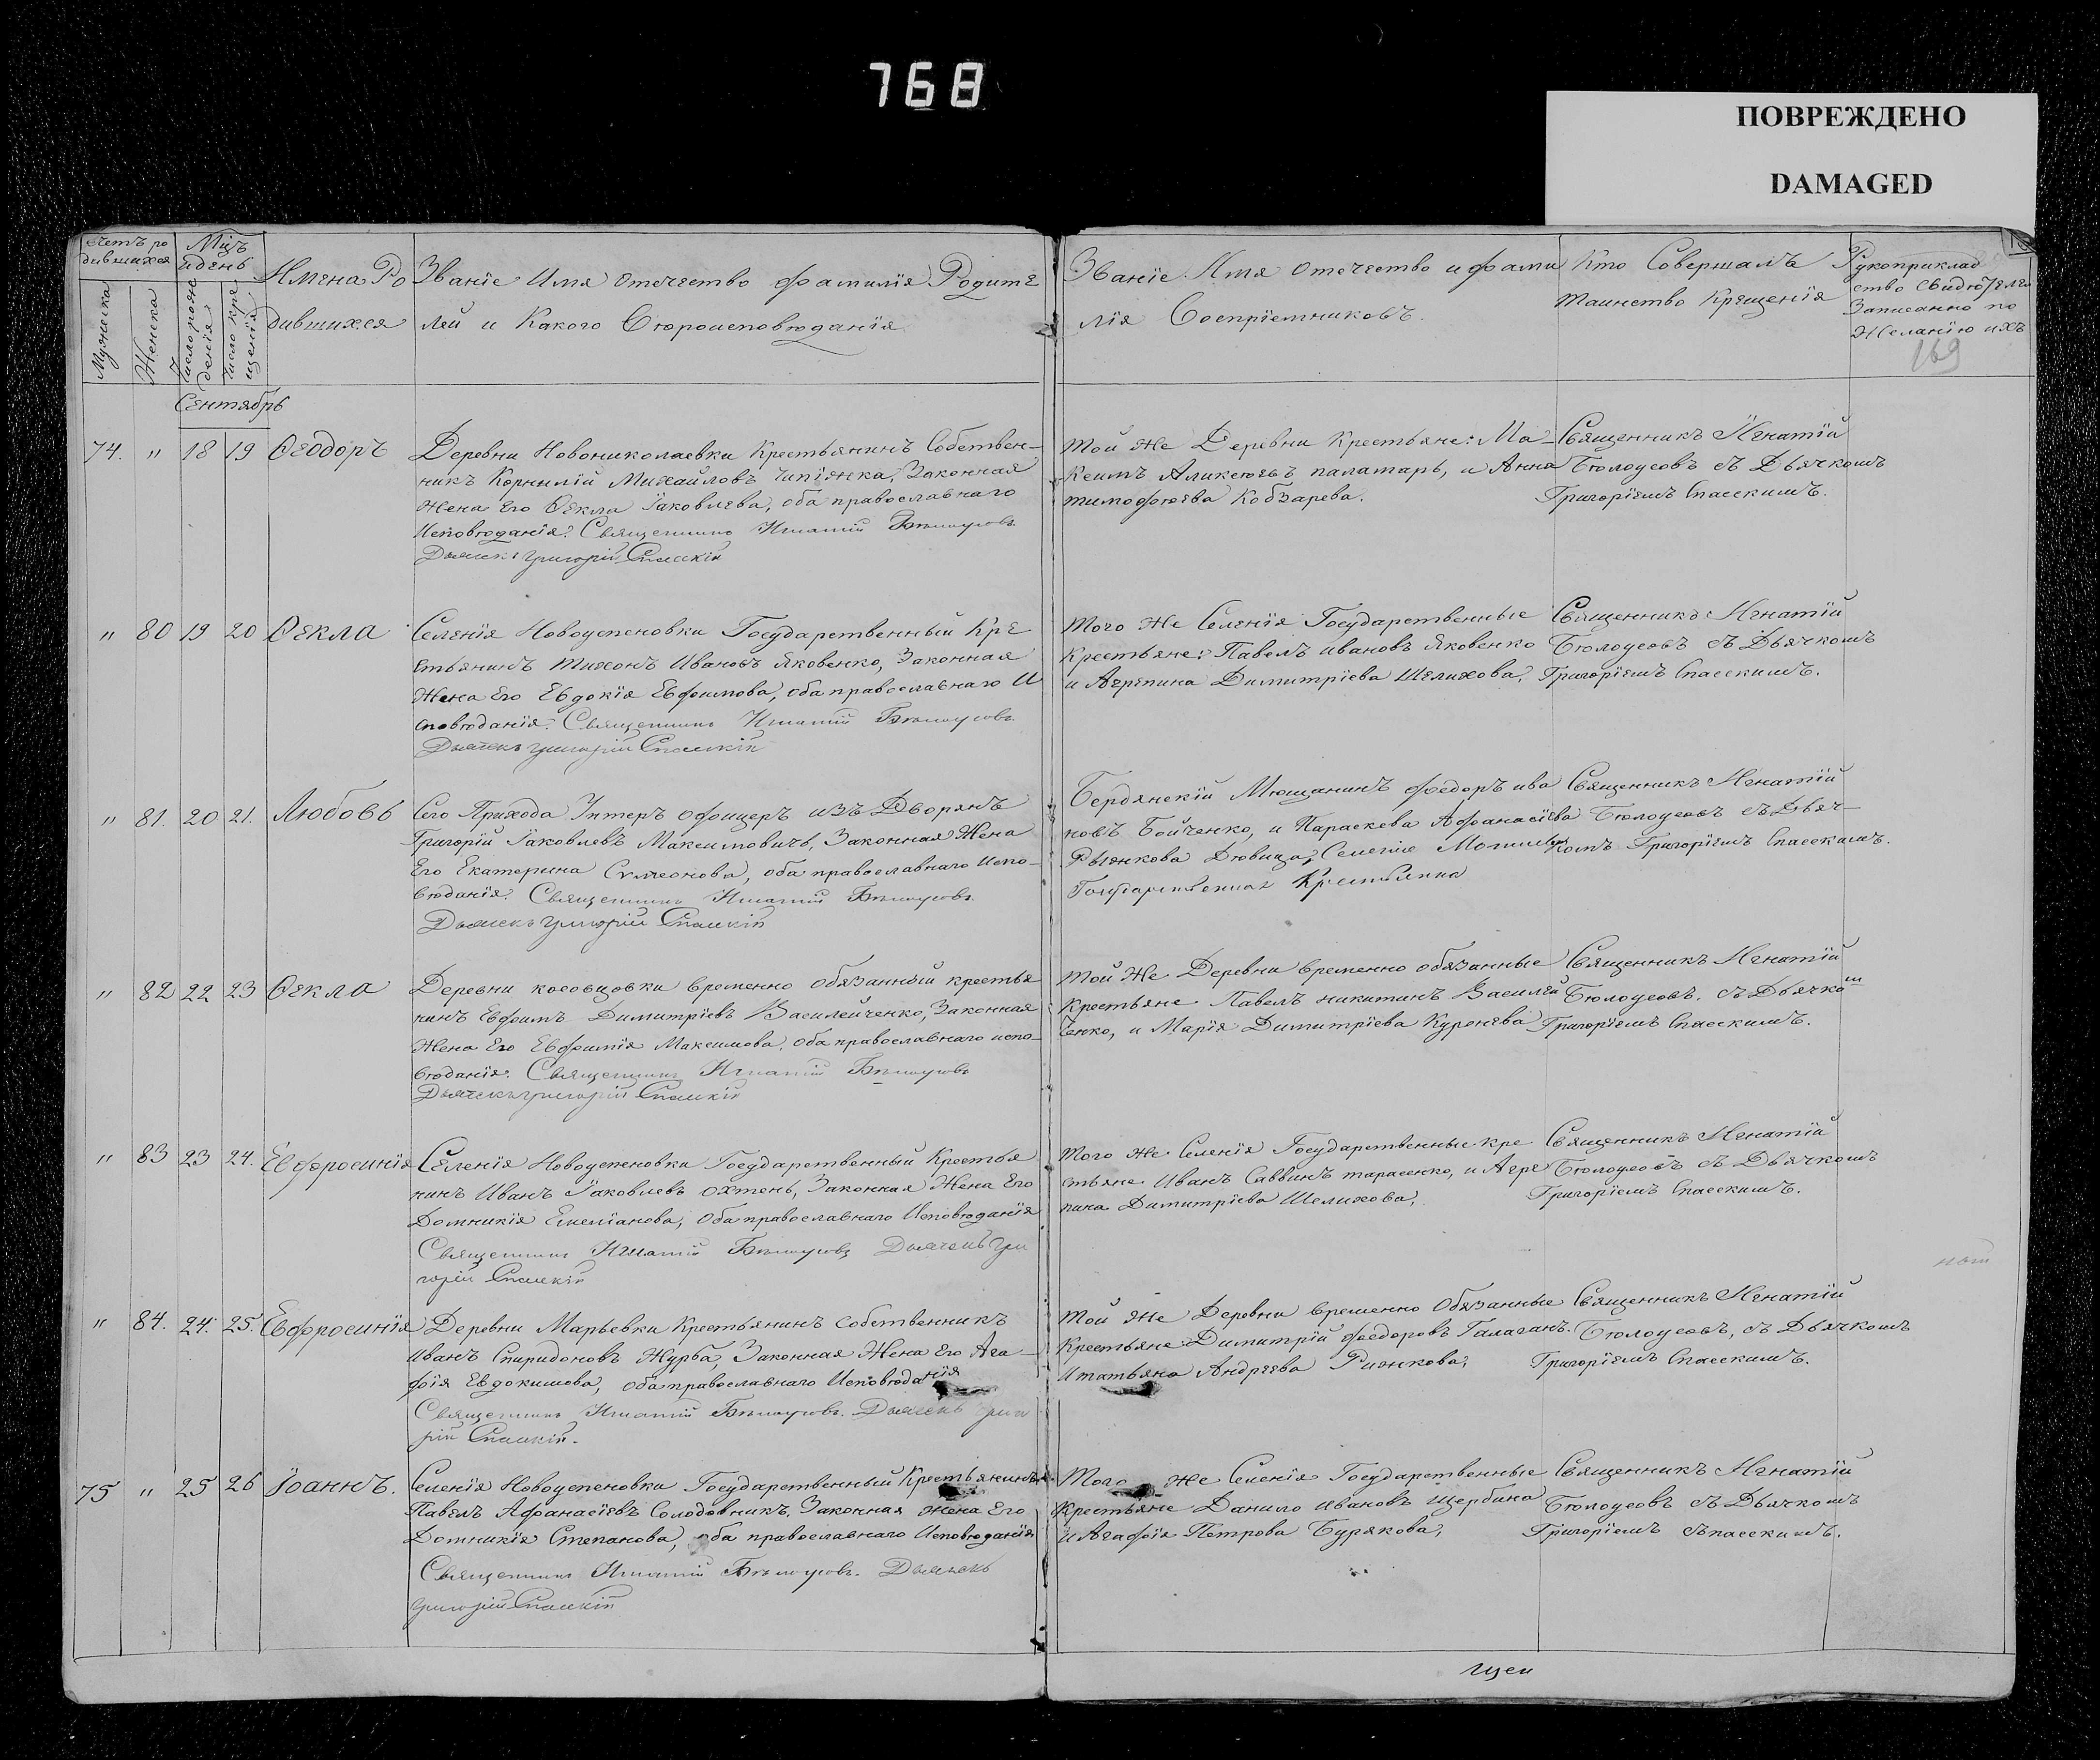 768
ПОВРЕЖДЕНО
DAMAGED
Счетъ ро
дившихся
Мцъ
и день
Мужеска
Женска
Число рож
денія
Число кре
щенія
Имена Ро
дившихся
Званіе Имя Отечество фамилія Родите
лей и Какого Вѣроисповѣданія
Званіе Имя Отечество и фами
лія Восприемниковъ.
Кто Совершалъ
Таинство Крещенія
Рукоприклад
ство свидѣтелей
Записанно по
Желанію ихъ
169
Сентябрь
74. " 18 19 Ѳеодоръ
Деревни Новониколаевки Крестьянинъ Собствен-
никъ Корнилій Михайловъ Законная
Жена Его Ѳекла Іаковлева, оба православнаго
Исповѣданія. Священникъ Игнатій Бѣлоусовъ
Дьячекъ Григорій Спасскій
той же Деревни Крестьяне: Ма-
ксимъ Аликсѣевъ паламарь, и Анна
тимофѣева Кобзарева.
Священникъ Игнатій
Бѣлоусовъ съ Дьячкомъ
Григоріемъ Спасскимъ.
" 80 19 20 Ѳекла
Селенія Новоуспеновки Государственный Кре
стьянинъ тихонъ Ивановъ Яковенко, Законная
Жена Его Евдокія Евфимова, оба православнаго И
сповѣданія. Священникъ Игнатій Бѣлоусовъ
Дьячекъ Григорій Спасскій
того же Селенія Государственные
Крестьяне: Павелъ ивановъ Яковенко
и Агрепина Димитріева Шелихова,
Священникъ Игнатій
Бѣлоусовъ съ Дьячкомъ
Григоріемъ Спасскимъ.
" 81. 20 21. Любовь
Сего Прихода Унтеръ офицеръ изъ Дворянъ
Григорій Іаковлевъ Максимовичъ, Законная Жена
Его Екатерина Сумеонова, оба православнаго Испо-
вѣданія. Священникъ Игнатій Бѣлоусовъ
Дьячекъ Григорій Спасскій
Бердянскій Мѣщанинъ федоръ ива
новъ Бойченко, и Параскева Афанасіева
Рыенкова Дѣвица, Селенія
Государственная Крестьянка
Священникъ Игнатій
Бѣлоусовъ съ Дьяч-
комъ Григоріемъ Спасскимъ.
" 82 22 23 Ѳекла
Деревни косовцовки временно обязанный крестья
нинъ Евфимъ Димитріевъ Василейченко, Законная
Жена Его Евфимія Максимова, оба православнаго испо-
вѣданія. Священникъ Игнатій Бѣлоусовъ
Дьячекъ Григорій Спасскій
той же Деревни временно обязанные
Крестьяне Павелъ никитинъ Василей
ченко, и Марія Димитріева Куренева
Священникъ Игнатій
Бѣлоусовъ, съ Дьячком
Григоріемъ Спасскимъ.
" 83 23 24. Евфросинія
Селенія Новоуспеновки Государственный Крестья
нинъ Иванъ Іаковлевъ охтень, Законная Жена Его
Домникія Емеліанова, Оба православнаго Исповѣданія
Священникъ Игнатій Бѣлоусовъ Дьячекъ Гри
горій Спасскій
того же Селенія Государственные кре
стьяне Иванъ Саввинъ тарасенко, и Агре
пина Димитріева Шелихова,
Священникъ Игнатій
Бѣлоусовъ съ Дьячкомъ
Григоріемъ Спасскимъ.
" 84. 24. 25. Евфросинія
Деревни Марьевки Крестьянинъ Собственникъ
Иванъ Спиридоновъ Журба, Законная Жена Его Ага-
фія Евдокимова, оба православнаго Исповѣданія
Священникъ Игнатій Бѣлоусовъ. Дьячекъ Григо
рій Спасскій.
той Же Деревни временно Обязанные
Крестьяне Димитрій федоровъ Галаганъ.
И татьяна Андреева Риенкова,
Священникъ Игнатій
Бѣлоусовъ, съ Дьячкомъ
Григоріемъ Спасскимъ.
75 " 25 26 Іоаннъ.
Селенія Новоуспеновки Государственный Крестьянинъ
Павелъ Афанасіевъ Солодовникъ, Законная жена Его
Домникія Степанова, оба православнаго Исповѣданія
Священникъ Игнатій Бѣлоусовъ. Дьячекъ
Григорій Спасскій
Того же Селенія Государственные
Крестьяне Данило Ивановъ Щербина
и Агафія Петрова Бурякова,
Священникъ Игнатій
Бѣлоусовъ съ Дьячкомъ
Григоріемъ Спасскимъ.